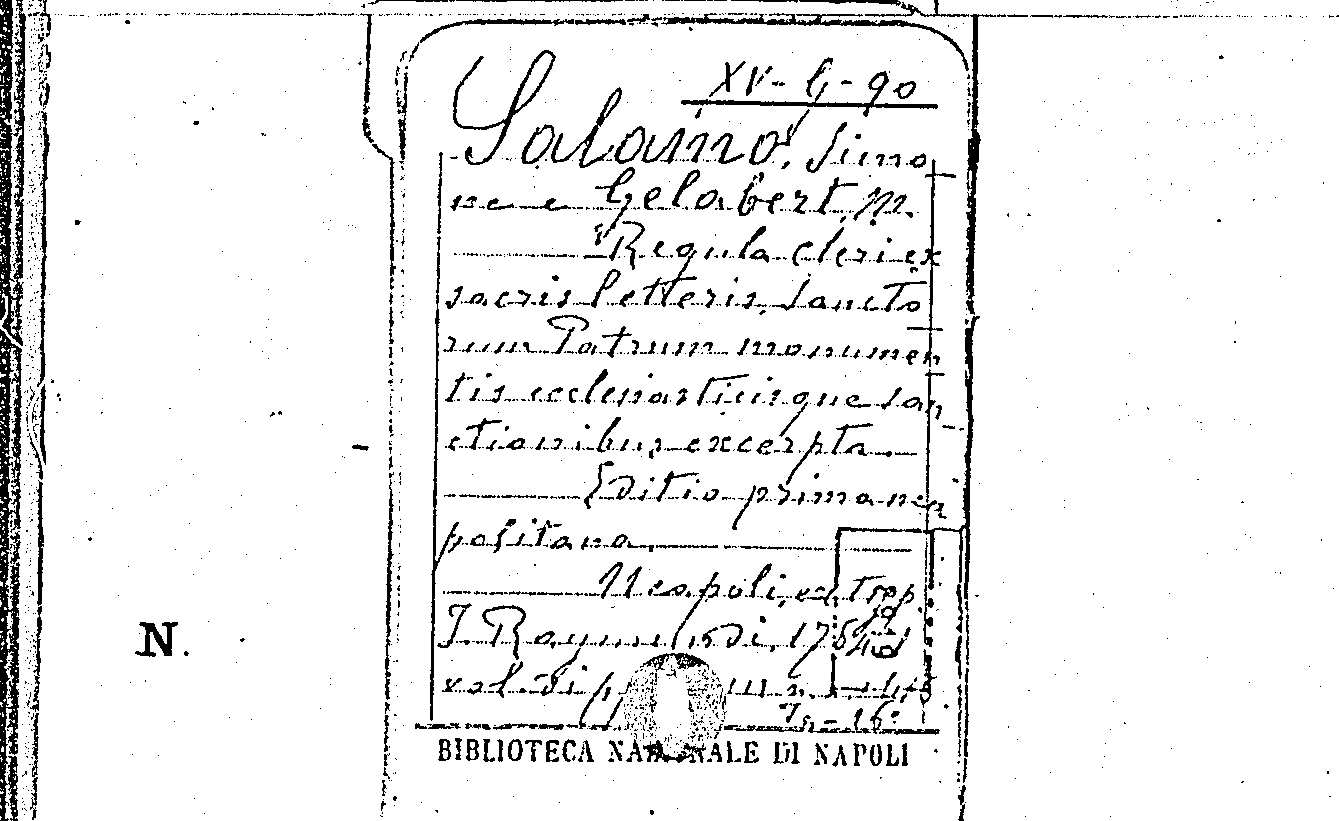 XV-G-90
Salamo, Simo
ne e Gelabert M.
Regula cleri ex
sacris letteris, Sancto
rum Patrum monumen
tis ecclesiasticisque san
ctionibus excerpta.
Editio prima nea
politana
Neapoli, ex typ.
J. Raymundi, 17
vol. di
in-16°
N.
BIBLIOTECA NAZIONALE DI NAPOLI